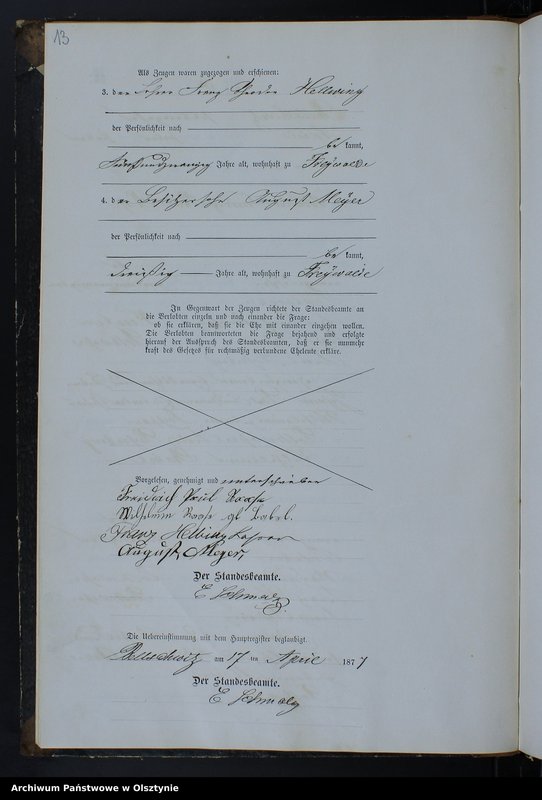 13
Als Zeugen waren zugezogen und erschienen:
3. der Lehrer Franz Theodor Hellwing
der Persönlichkeit nach
be kannt,
fünfundzwanzig Jahre alt, wohnhaft zu Freywalde
4. der Besitzersohn August Meyer
der Persönlichkeit nach
be kannt,
dreißig Jahre alt, wohnhaft zu Freywalde
In Gegenwart der Zeugen richtete der Standesbeamte an
die Verlobten einzeln und nach einander die Frage:
ob sie erklären, daß sie die Ehe mit einander eingehen wollen.
Die Verlobten beantworteten die Frage bejahend und erfolgte
hierauf der Ausspruch des Standesbeamten, daß er sie nunmehr
kraft des Gesetzes für rechtmäßig verbundene Eheleute erkläre.
Vorgelesen, genehmigt und unterschrieben
Friedrich Paul
Wilhelmine
Franz Hellwing Lehrer
August Meyer,
Der Standesbeamte.
E Schmalz
Die Uebereinstimmung mit dem Hauptregister beglaubigt.
am 17 ten April 1877
Der Standesbeamte.
E Schmalz
Archiwum Państwowe w Olsztynie